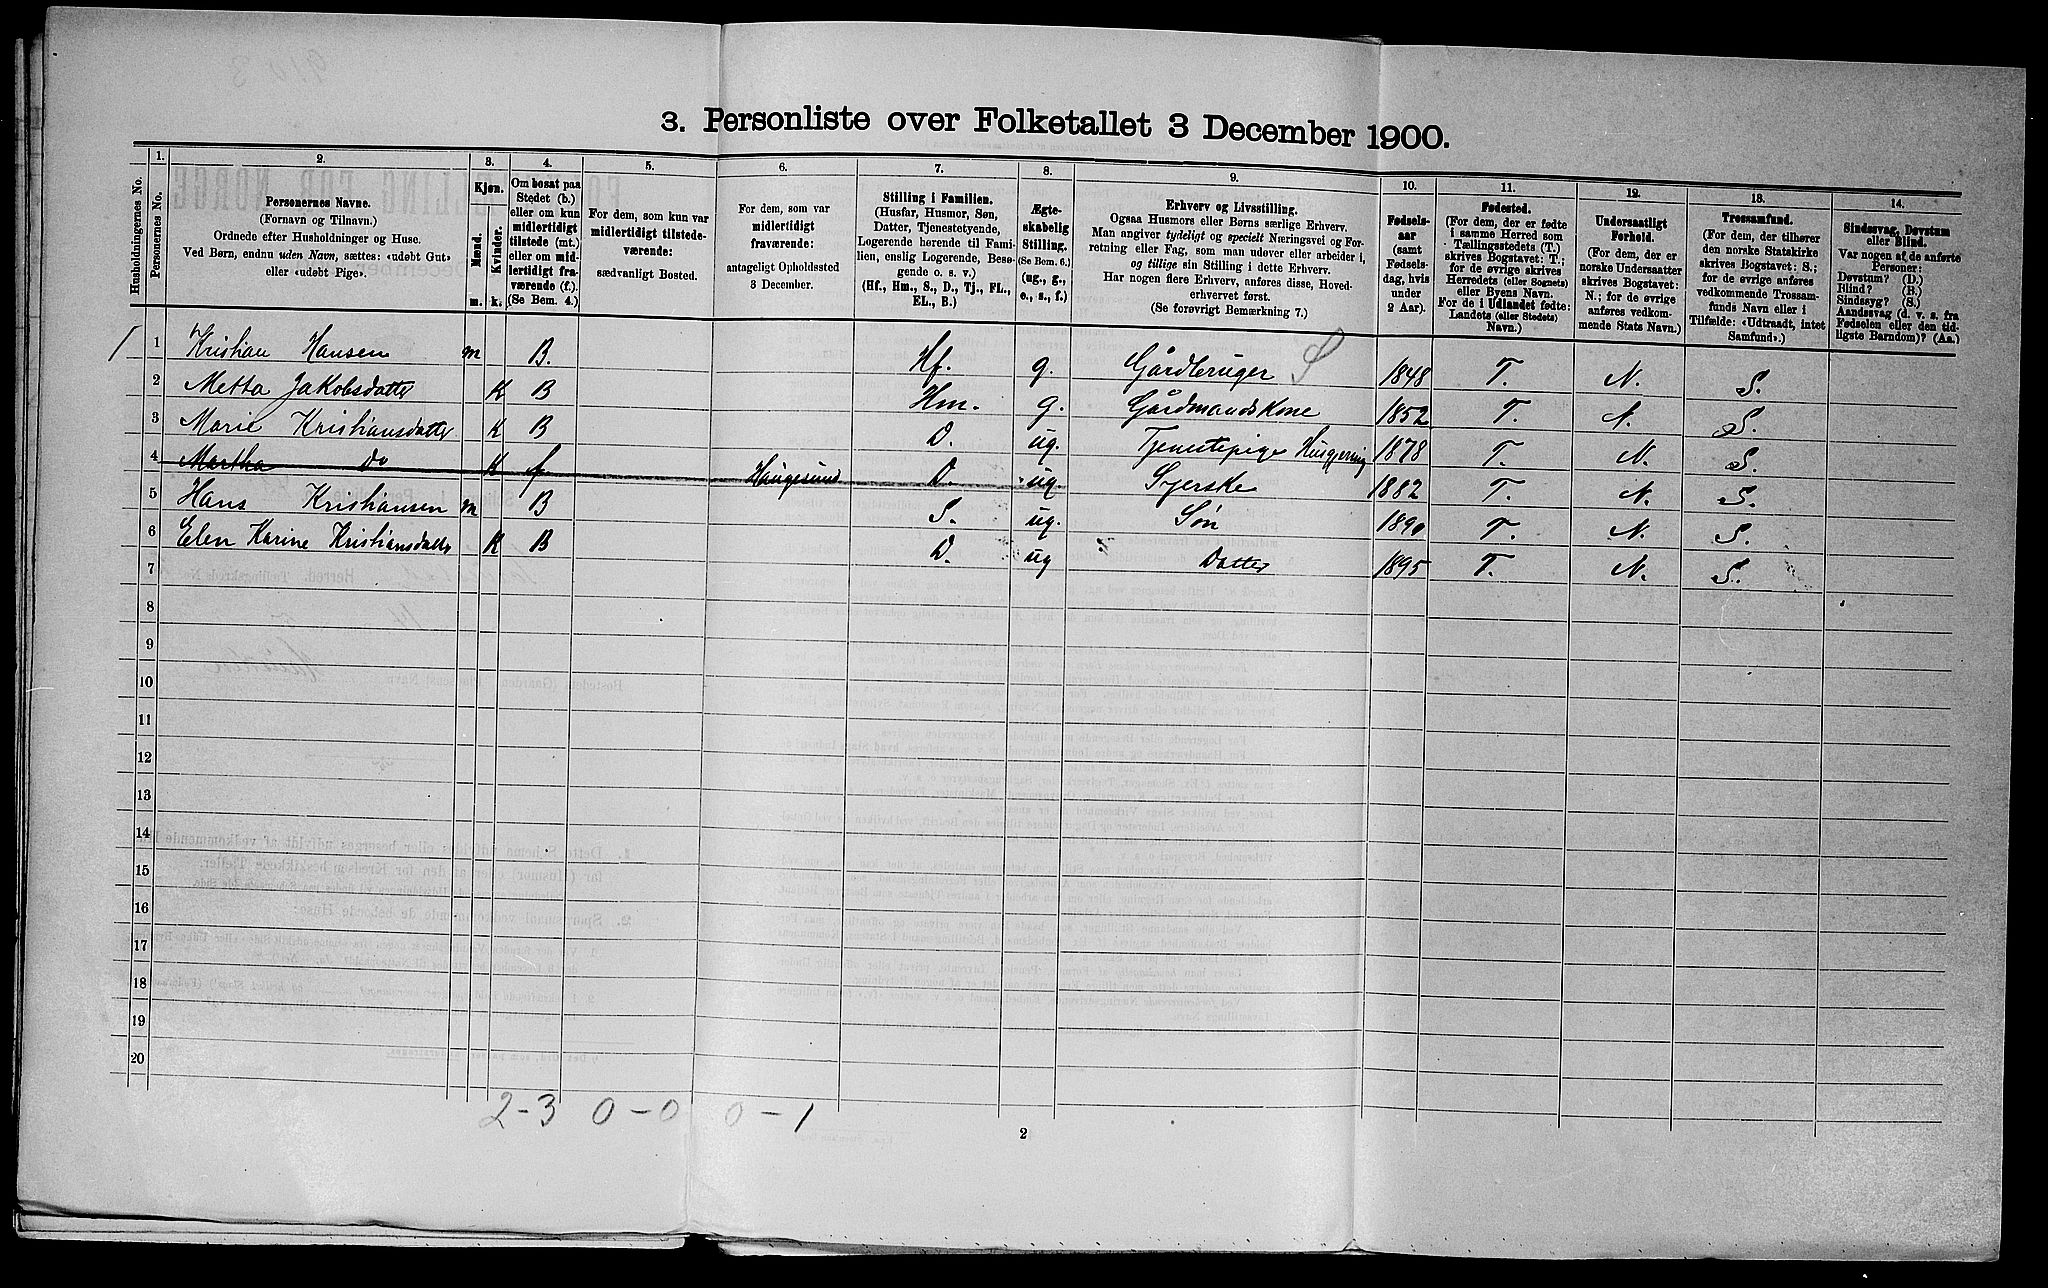 3. Personliste over Folketallet 3 December 1900.
Husholdningernes No.
1.
Personernes No.
2.
Personernes Navne.
(Fornavn og Tilnavn.)
Ordnede efter Husholdninger og Huse.
Ved Børn, endnu uden Navn, sættes: «udøbt Gut»
eller «udøbt Pige».
3.
Kjøn.
Mænd.
Kvinder.
m.
k.
4.
Om bosat paa
Stedet (b.)
eller om kun
midlertidigt
tilstede (mt.)
eller om mid-
lertidigt fra-
værende (f.).
(Se Bem. 4.)
5.
For dem, som kun var
midlertidigt tilstede-
værende:
sædvanligt Bosted.
6.
For dem, som var
midlertidigt
fraværende:
antageligt Opholdssted
3 December.
7.
Stilling i Familien.
(Husfar, Husmor, Søn,
Datter, Tjenestetyende,
Logerende hørende til Fami-
lien, enslig Logerende, Besø-
gende o. s. v.)
(Hf., Hm., S., D., Tj., FL.,
EL., B.)
8.
Ægte-
skabelig
Stilling.
(Se Bem. 6.)
(ug., g.,
e., s., f.)
9.
Erhverv og Livsstilling.
Ogsaa Husmors eller Børns særlige Erhverv.
Man angiver tydeligt og specielt Næringsvei og For-
retning eller Fag, som man udøver eller arbeider i,
og tillige sin Stilling i dette Erhverv.
Har nogen flere Erhverv, anføres disse, Hoved-
erhvervet først.
(Se forøvrigt Bemærkning 7.)
10.
Fødsels-
aar
(samt
Fødsels-
dag, hvis
under
2 Aar).
11.
Fødested.
(For dem, der er fødte
i samme Herred som
Tællingsstedets (T.)
skrives Bogstavet: T.;
for de øvrige skrives
Herredets (eller Sognets)
eller Byens Navn.
For de i Udlandet fødte:
Landets (eller Stedets)
Navn.)
12.
Undersaatligt
Forhold.
(For dem, der er
norske Undersaatter
skrives Bogstavet:
N.; for de øvrige
anføres vedkom-
mende Stats Navn.)
13.
Trossamfund.
(For dem, der tilhører
den norske Statskirke
skrives Bogstavet: S.;
for de øvrige anføres
vedkommende Trossam-
funds Navn eller i
Tilfælde: «Udtraadt, intet
Samfund».)
14.
Sindssvag, Døvstum
eller Blind.
Var nogen af de anførte
Personer:
Døvstum? (D.)
Blind? (B.)
Sindssyg? (S.)
Aandssvag (d. v. s. fra
Fødselen eller den tid-
ligste Barndom)? (Aa.)
1 1 Kristian Hansen m B. Hf. g. Gårdbruger S 1848 T. N. S.
2 Metta Jakobsdatter K B Hm. g. Gårdmandskone 1852 T. N. S.
3 Marie Kristiansdatter K B D. ug. Tjenestepige Husgjerning 1878 T. N. S.
4 Martha do K f Haugesund D. ug. Syerske 1882 T. N. S.
5 Hans Kristiansen m B S. ug. Søn 1890 T. N. S.
6 Elen Karine Kristiansdatter K B D. ug Datter 1895 T. N. S.
7
8
9
10
11
12
13
14
15
16
17
18
19
20
2-3 0-0 0-1
2